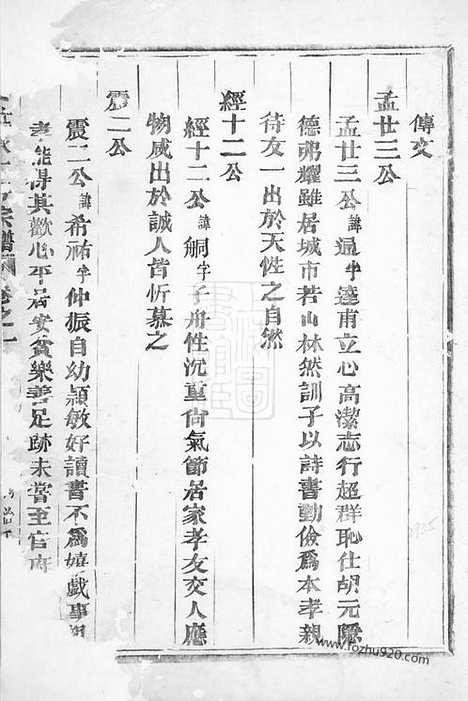 傳文
孟廿三公
孟廿三公諱通字達甫立心高潔志行超群恥仕胡元隱
德弗耀雖居城市若山林然訓子以詩書勤儉爲本孝親
待友一出於天性之自然
經十二公
經十二公諱艒字子舟性沉重尙氣節居家孝友交人應
物咸出於誠人皆忻慕之
震二公
震二公諱希祐字仲振自幼穎敏好讀書不爲嬉戲事
孝能得其歡心平居安貧樂善足跡未嘗至官府
宗譜 卷之一
www.fozhu920.com